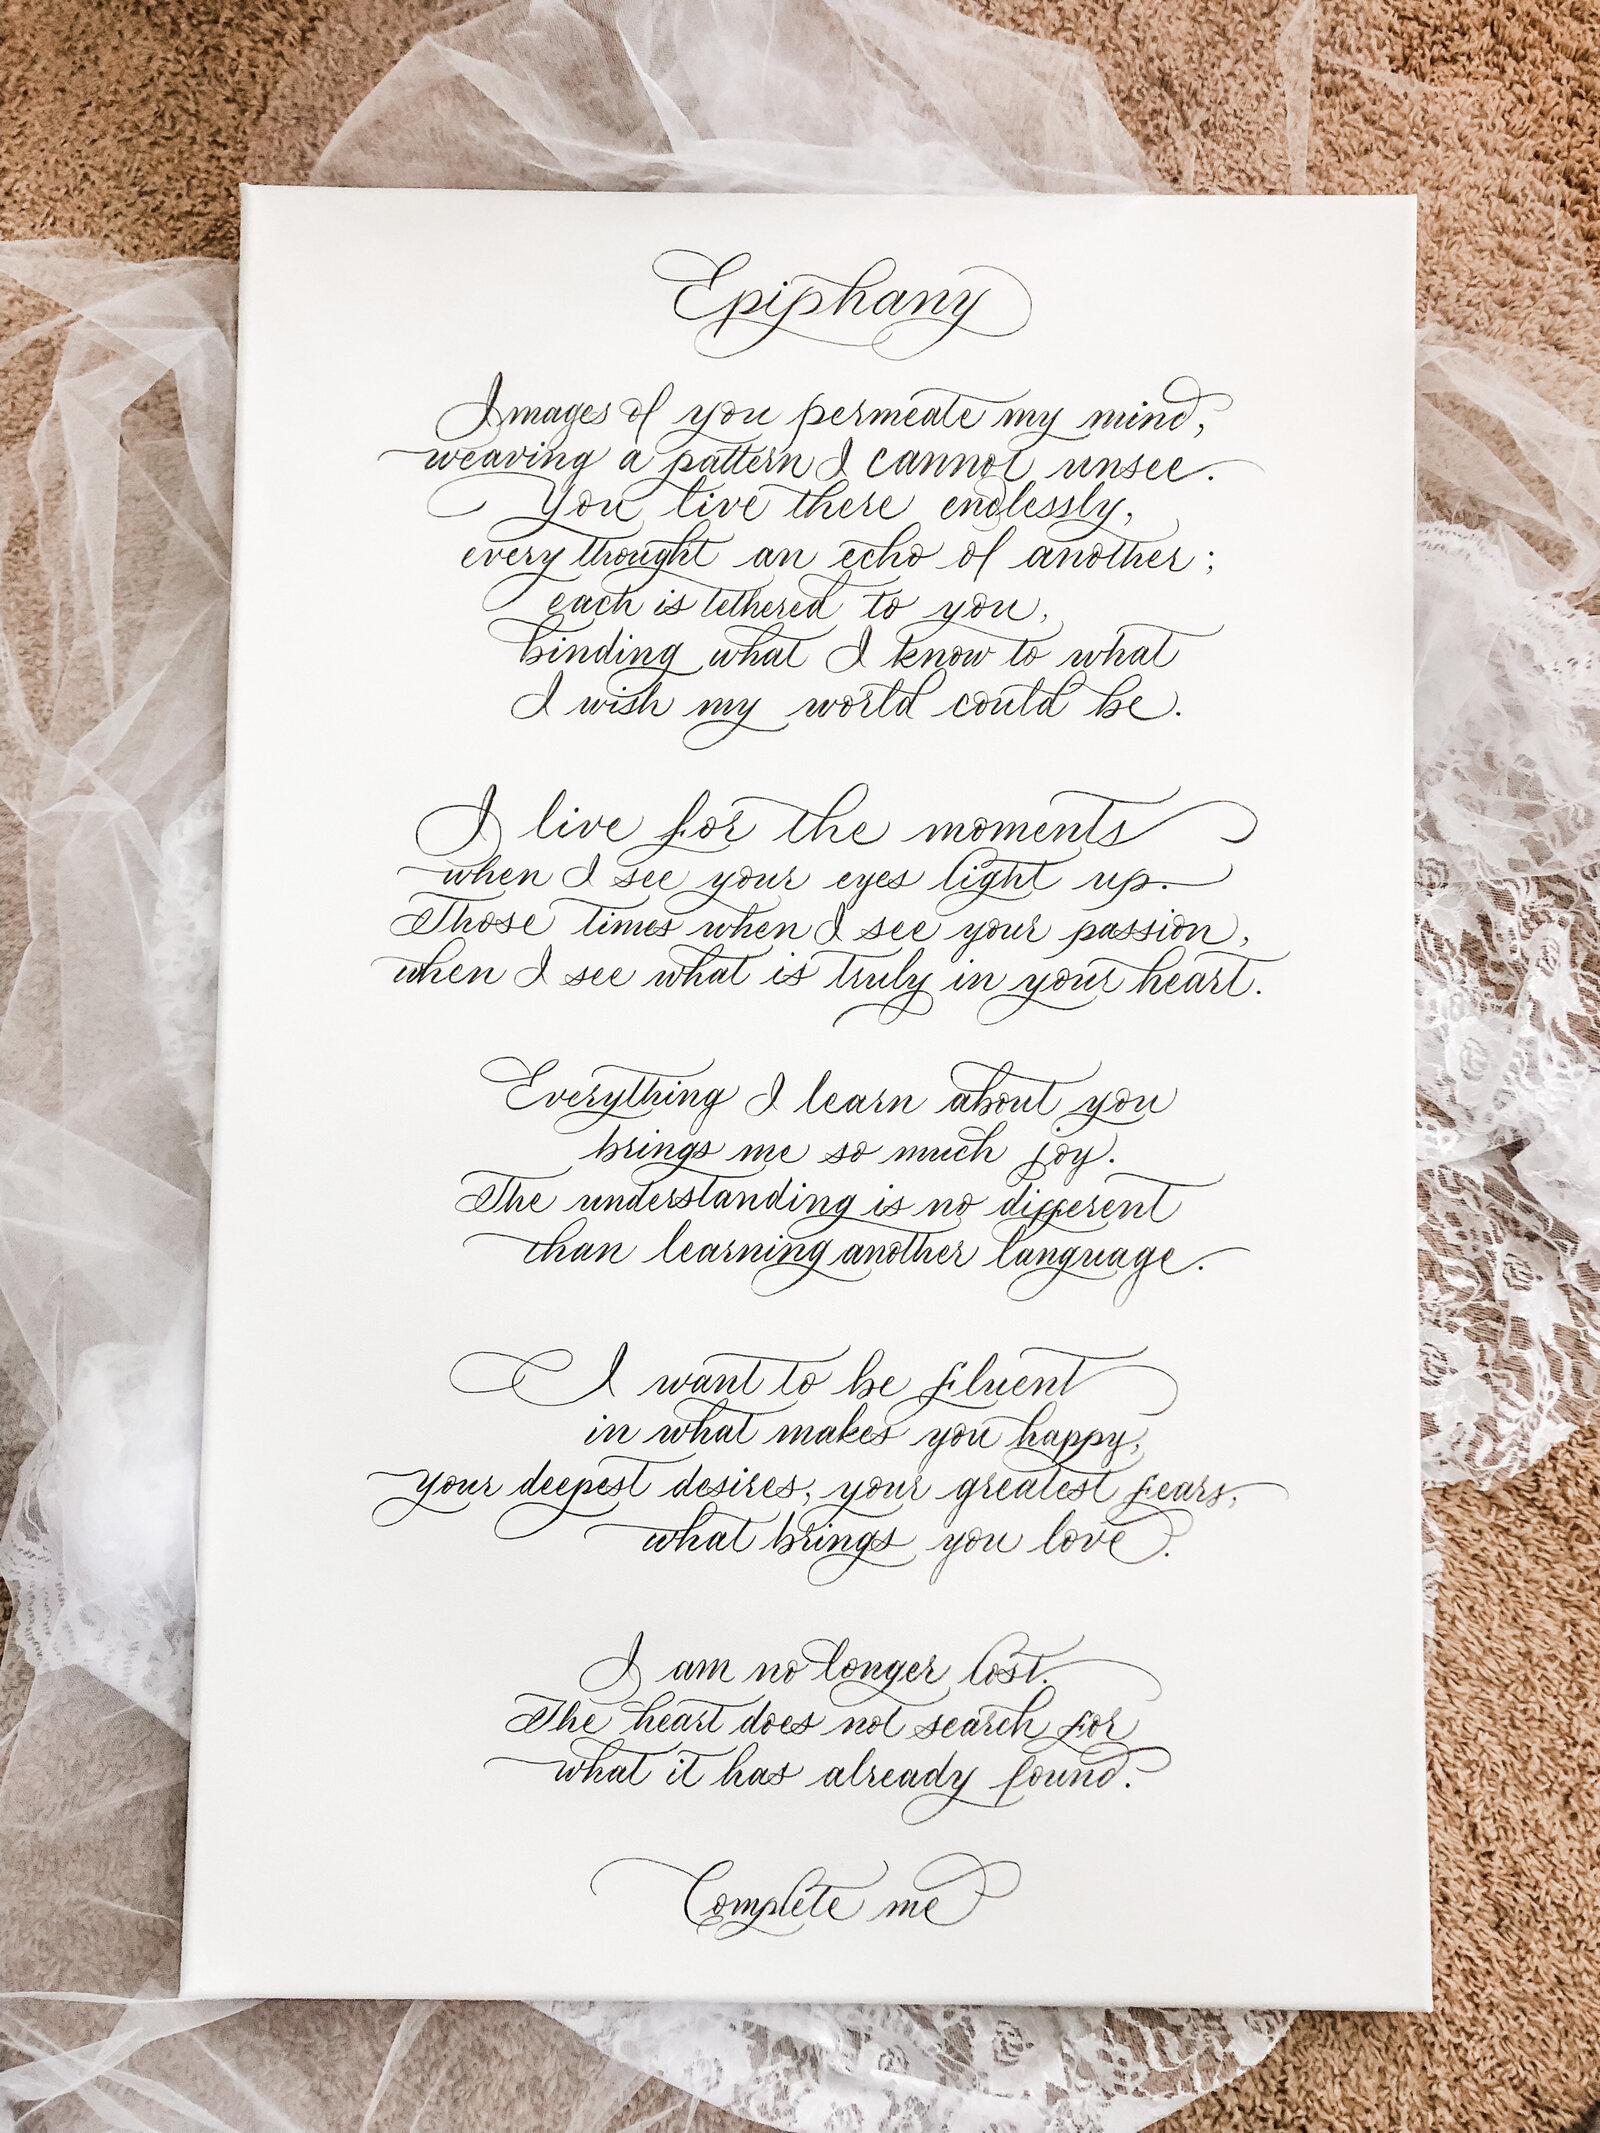 Epiphany
Images of you permeate my mind,
weaving a pattern I cannot unsee.
You live there endlessly,
every thought an echo of another;
each is tethered to you,
binding what I know to what
I wish my world could be.
I live for the moments
when I see your eyes light up.
Those times when I see your passion,
when I see what is truly in your heart.
Everything I learn about you
brings me so much joy.
The understanding is no different
than learning another language.
I want to be fluent
in what makes you happy,
your deepest desires, your greatest fears,
what brings you love.
I am no longer lost.
The heart does not search for
what it has already found.
Complete me